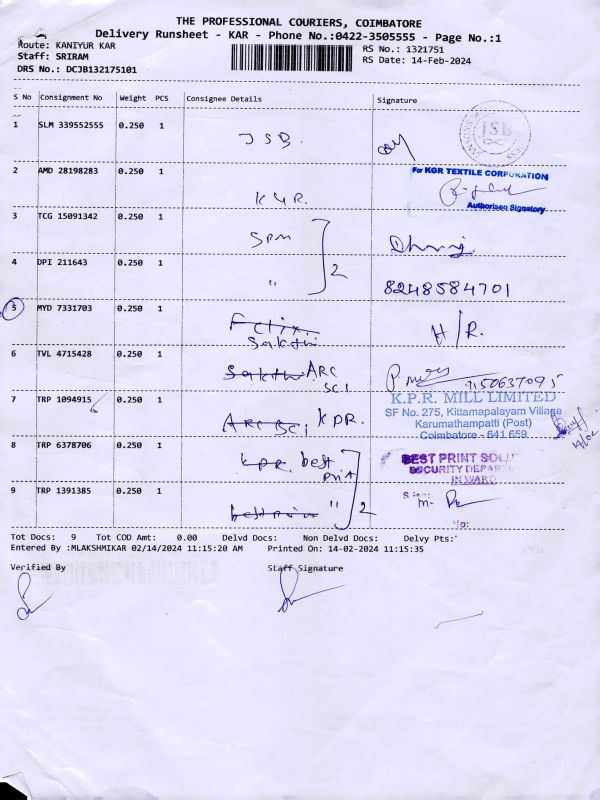 THE PROFESSIONAL COURIERS, COIMBATORE
Delivery Runsheet - KAR - Phone No.:0422-3505555 - Page No.:1
Route: KANIYUR KAR
RS No.: 1321751
Staff: SRIRAM
RS Date: 14-Feb-2024
DRS No.: DCJB132175101
S No Consignment No Weight PCS Consignee Details Signature
1 SLM 339552555 0.250 1 JSB. JSB
2 AMD 28198283 0.250 1 KGR. For KGR TEXTILE CORPORATION
Authorised Signatory
3 TCG 15091342 0.250 1 SPM
4 DPI 211643 0.250 1 " 2 8248584701
5 MYD 7331703 0.250 1 Felix. Sakthi H/R.
6 TVL 4715428 0.250 1 Sakthi ARC SCI
7 TRP 1094915 0.250 1 ARC SCI KPR.
K.P.R. MILL LIMITED
SF No. 275, Kittamapalayam Village
Karumathampatti (Post)
Coimbatore - 641 659
8 TRP 6378706 0.250 1 KPR. best print
BEST PRINT
SECURITY
INWARD
9 TRP 1391385 0.250 1 best print " 2
No:
Tot Docs: 9 Tot COD Amt: 0.00 Delvd Docs: Non Delvd Docs: Delvy Pts:
Entered By :MLAKSHMIKAR 02/14/2024 11:15:20 AM Printed On: 14-02-2024 11:15:35
Verified By Staff Signature